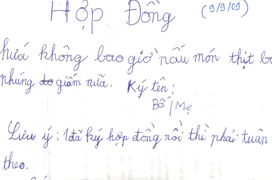 Hợp Đồng (9/9/09)
hứa không bao giờ nấu món thịt bo
nhúng dấm nữa. Ký tên:
Bố/Mẹ
Lưu ý: 1 đã ký hợp đồng rồi thì phải tuân
theo.